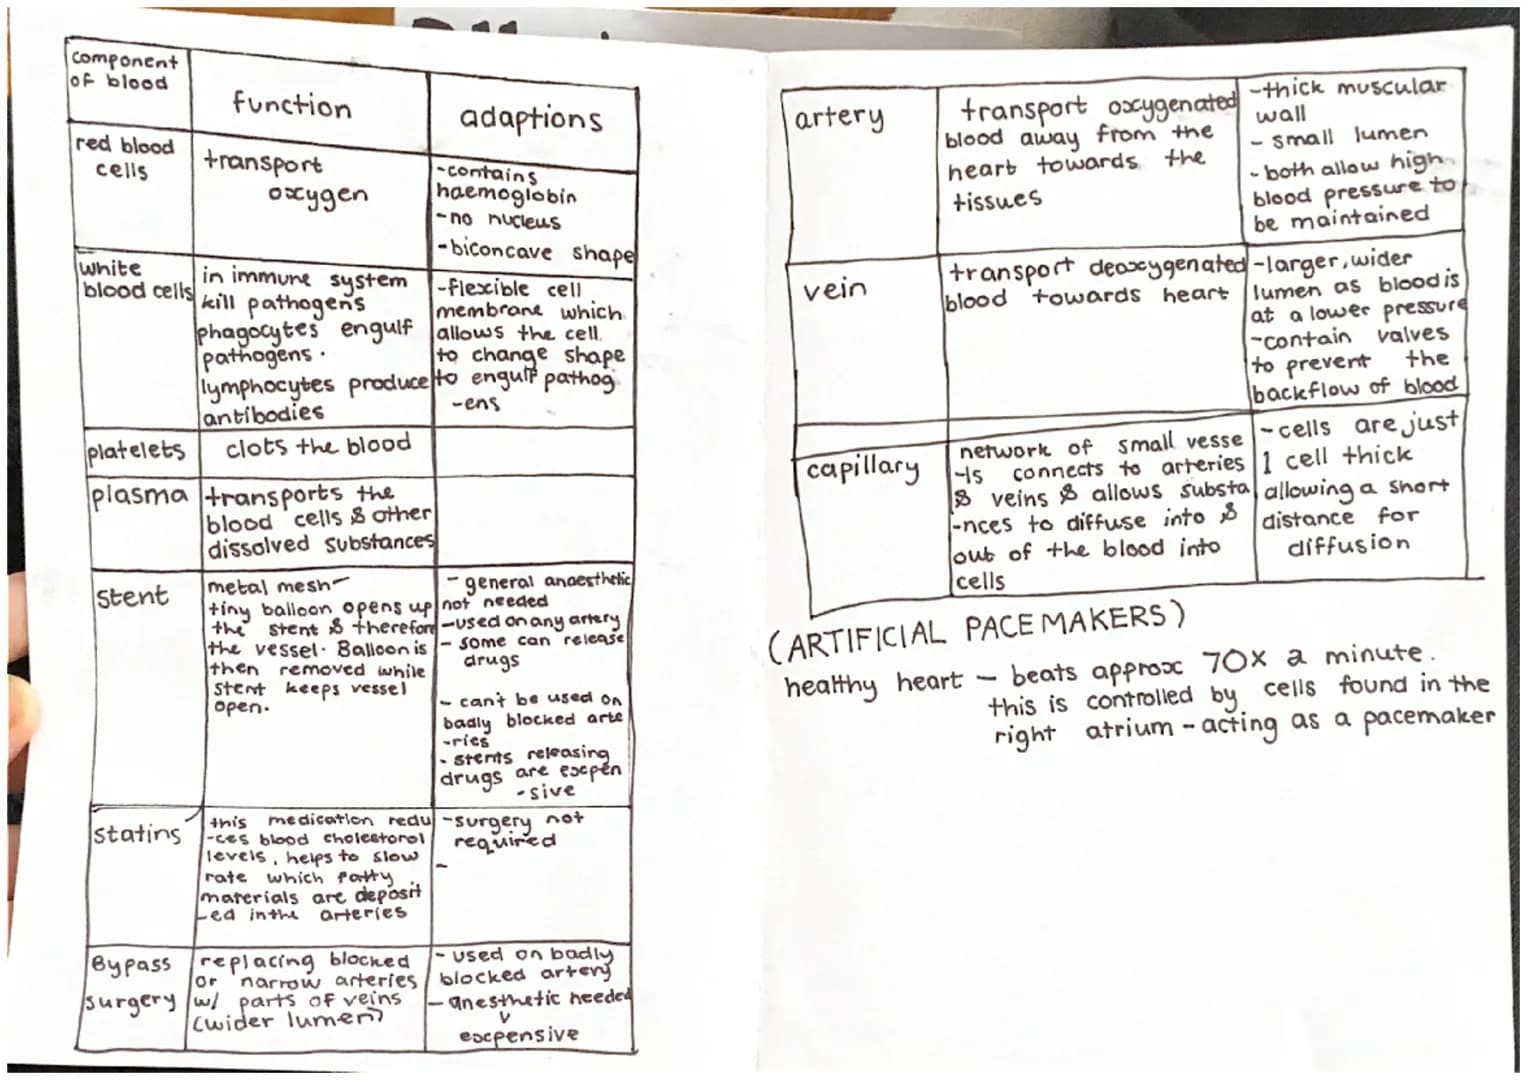 component
of blood
function
adaptions
red blood
cells
transport
oxygen
-contains
haemoglobin
-no nucleus
-biconcave shape
white
blood cells
in immune system
kill pathogens
phagocytes engulf
pathogens.
lymphocytes produce
antibodies
-flexible cell
membrane which
allows the cell.
to change shape
to engulf pathog
-ens
platelets
clots the blood
plasma
transports the
blood cells & other
dissolved substances
stent
metal mesh-
tiny balloon opens up
the stent & therefore
the vessel. Balloon is
then removed while
stent keeps vessel
open.
- general anaesthetic
not needed
-used on any artery
- some can release
drugs
- can't be used on
badly blocked arte
-ries
- stents releasing
drugs are expen
-sive
statins
this medication redu
-ces blood cholestorol
levels, helps to slow
rate which fatty
materials are deposit
-ed in the arteries
-surgery not
required
-
Bypass
surgery
replacing blocked
or narrow arteries
w/ parts of veins
(wider lumen)
- used on badly
blocked artery
- anesthetic needed
v
expensive
artery
transport oxygenated
blood away from the
heart towards the
tissues
-thick muscular
wall
- small lumen
- both allow high
blood pressure to
be maintained
vein
transport deoxygenated
blood towards heart
-larger, wider
lumen as blood is
at a lower pressure
-contain valves
to prevent the
backflow of blood
capillary
network of small vesse
-ls connects to arteries
& veins & allows substa
-nces to diffuse into &
out of the blood into
cells
- cells are just
1 cell thick
allowing a short
distance for
diffusion
(ARTIFICIAL PACEMAKERS)
healthy heart - beats approx 70x a minute.
this is controlled by cells found in the
right atrium - acting as a pacemaker